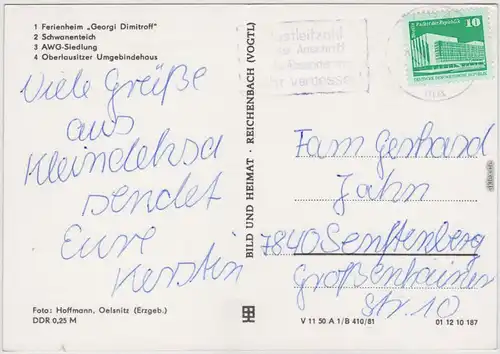 1 Ferienheim „Georgi Dimitroff"
2 Schwanenteich
3 AWG-Siedlung
4 Oberlausitzer Umgebindehaus
Viele Grüße
aus
Kleindehsa
sendet
Eure
Kerstin
Foto: Hoffmann, Oelsnitz (Erzgeb.)
DDR 0,25 M
BILD UND HEIMAT · REICHENBACH (VOGTL)
Palast der Republik
10
DEUTSCHE DEMOKRATISCHE REPUBLIK
Fam Gerhard
Jahn
7840 Senftenberg
Großenhainer
Str. 10
V 11 50 A 1/B 410/81
01 12 10 187